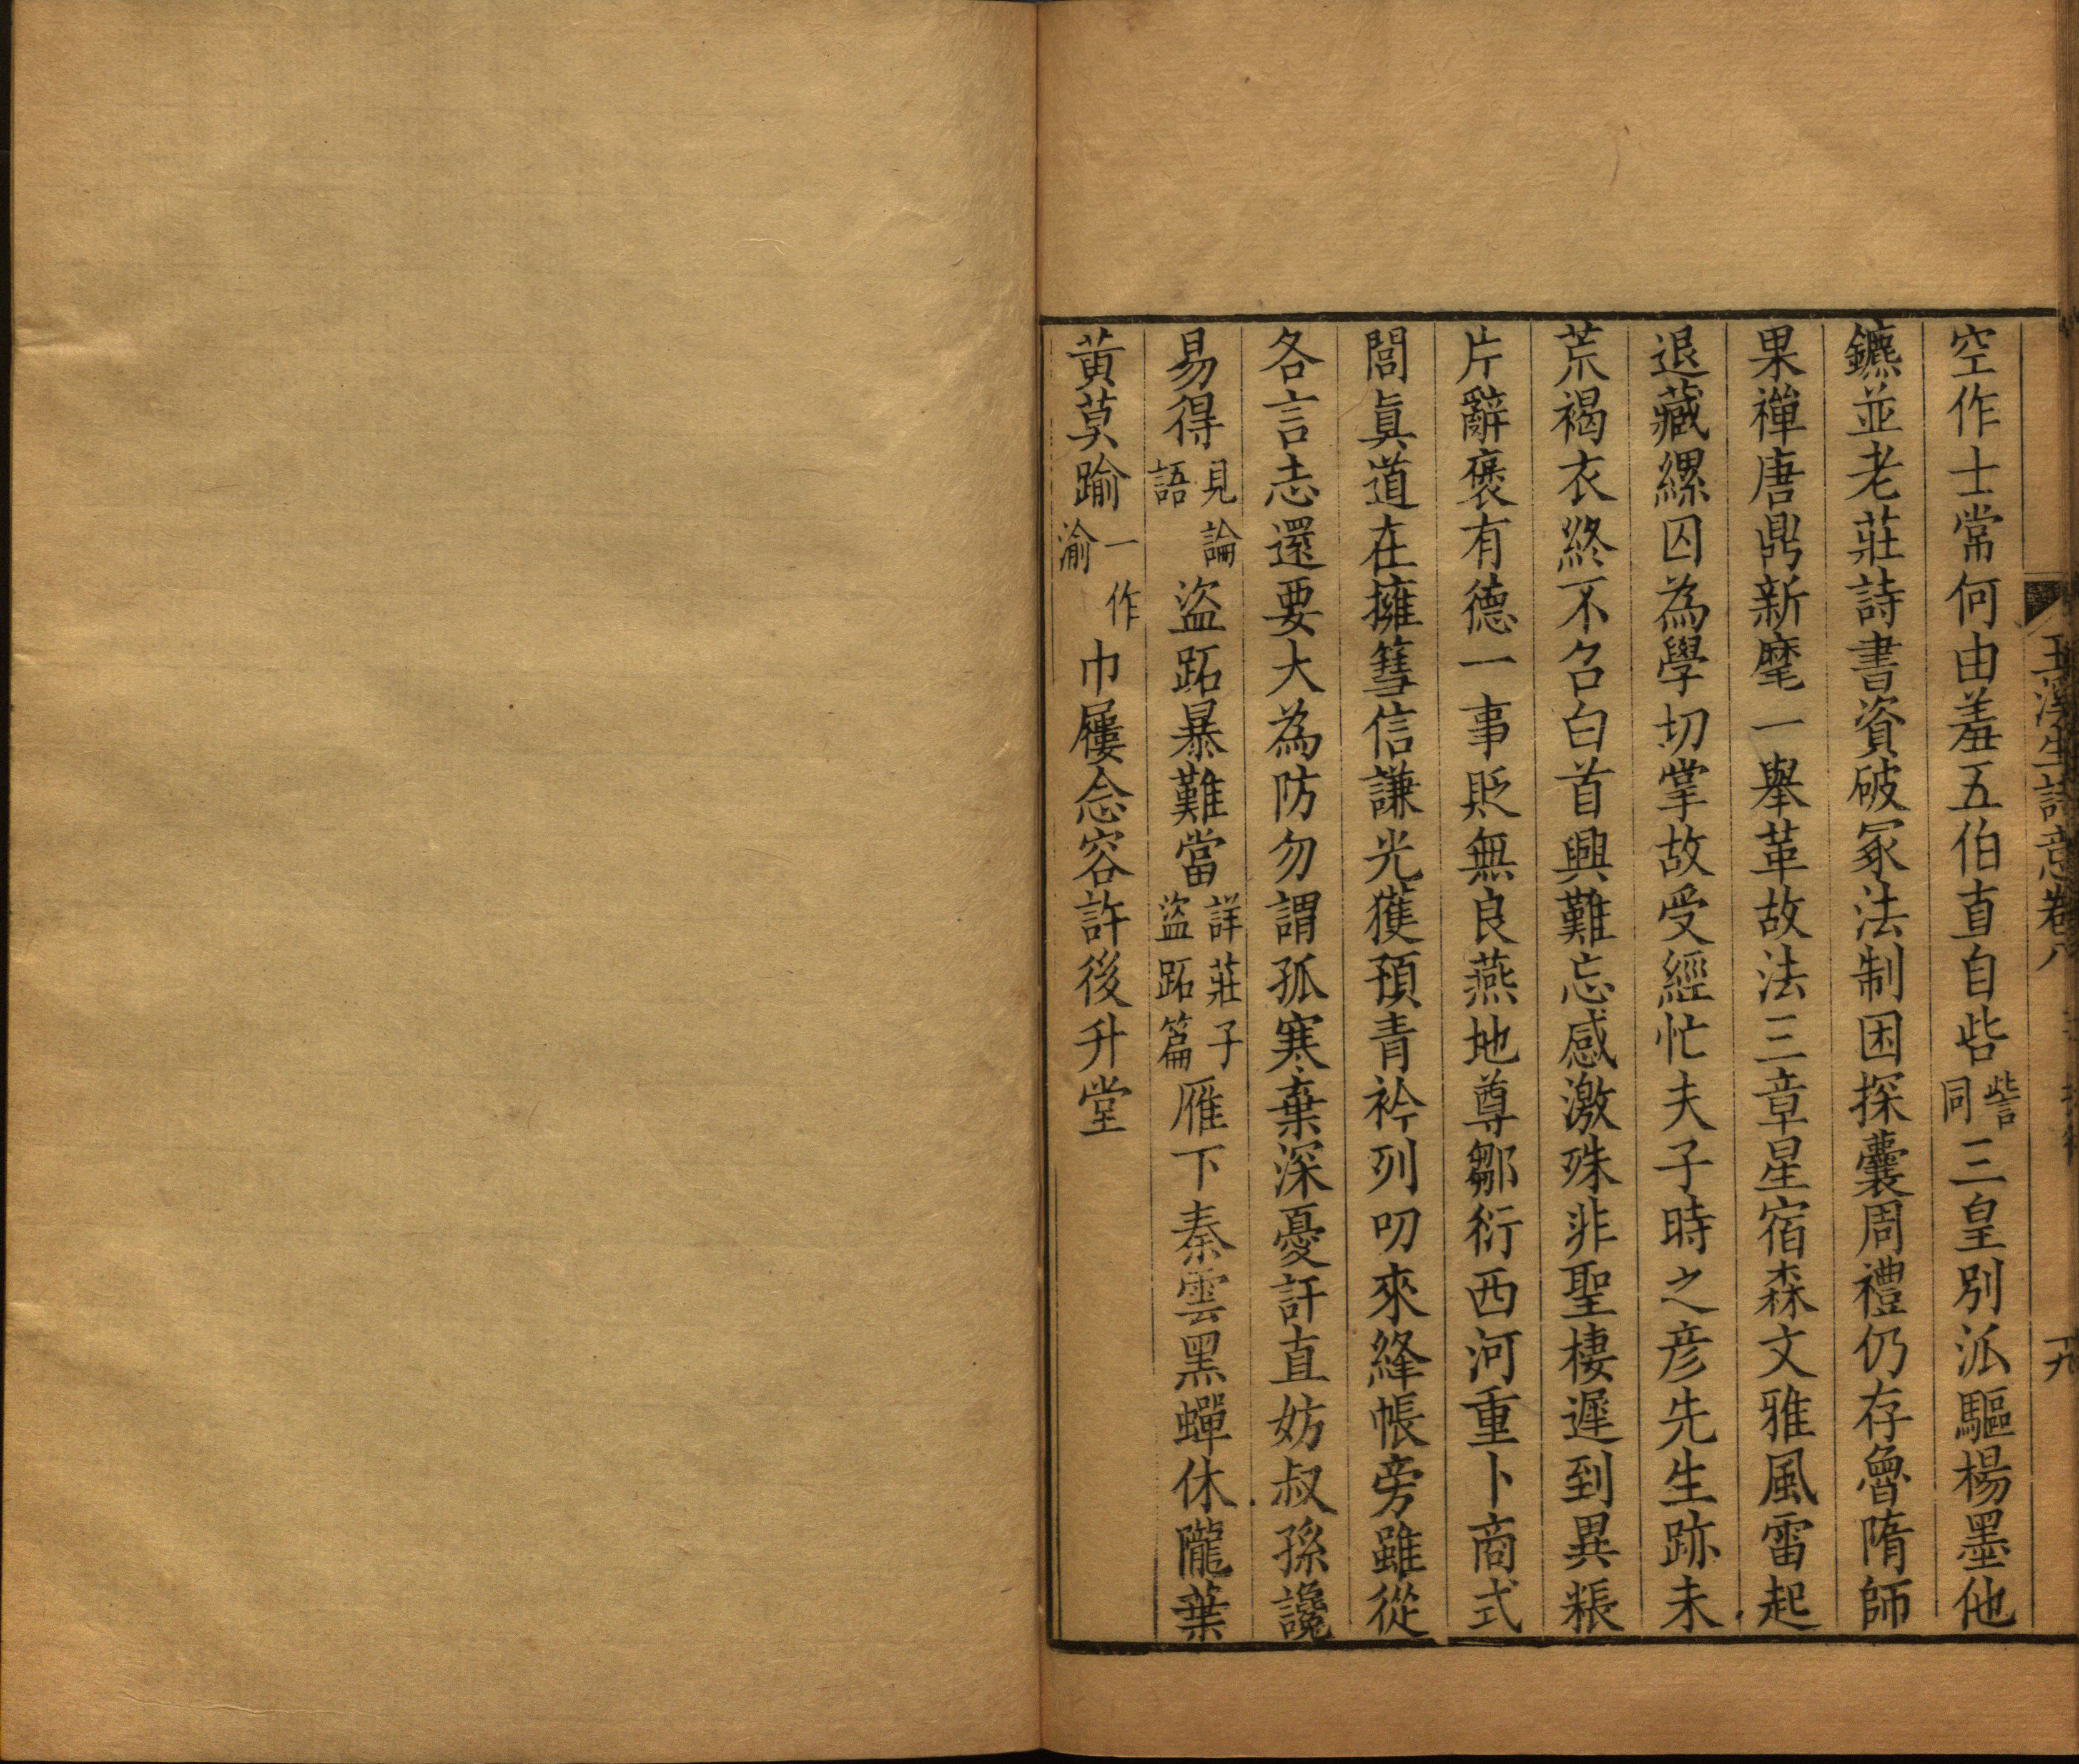 玉溪生詩意卷八
十九
空作士常何由羞五伯直自呰訾同三皇別派驅楊墨他
鑣並老莊詩書資破冢法制困探囊周禮仍存魯隋師
果禪唐鼎新麾一舉革故法三章星宿森文雅風雷起
退藏縲囚為學切掌故受經忙夫子時之彥先生跡未
荒褐衣終不召白首興難忘感激殊非聖棲遲到異粻
片辭褒有德一事貶無良燕地尊鄒衍西河重卜商式
閭眞道在擁篲信謙光獲預青衿列叨來絳帳旁雖從
各言志還要大為防勿謂孤寒棄深憂訐直妨叔孫讒
易得見論語盜跖暴難當詳莊子盜跖篇雁下秦雲黑蟬休隴葉
黃莫踰一作渝巾屨念容許後升堂